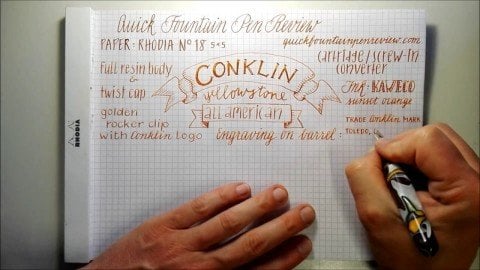 Quick Fountain Pen Review
PAPER: RHODIA Nº 18 5x5
quickfountainpenreview.com
full resin body
&
twist cap
golden
rocker clip
with conklin logo
CONKLIN
yellowstone
all american
cartridge/screw-in
converter
Ink: KAWECO
sunset orange
engraving on barrel:
TRADE conklin MARK
TOLEDO,
RHODIA